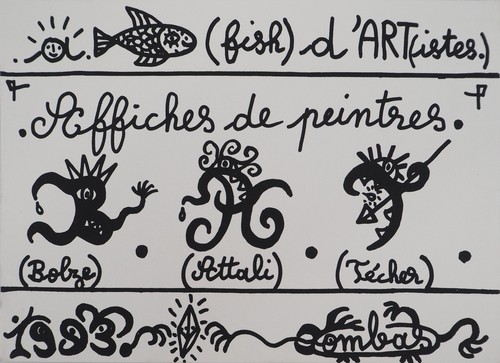 .a. (fish) d'ART(istes.)
.Affiches de peintres.
(Bobze) (Attali) (Técher)
1993. Combas